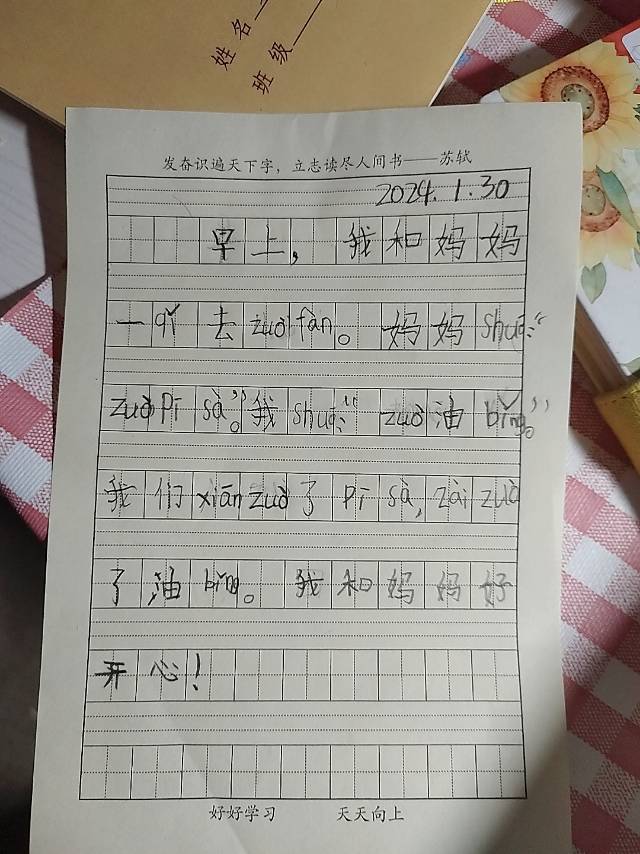 姓名
班级
发奋识遍天下字，立志读尽人间书——苏轼
2024.1.30
早上，我和妈妈
一qǐ去zuò fàn。妈妈shuō:“
zuò pī sà。”我shuō:“zuò油bǐng。”
我们xiān zuò了pī sà,zài zuò
了油bǐng。我和妈妈好
开心！
好好学习 天天向上